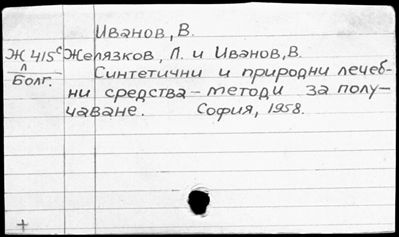 Иванов, В.
Ж 415с Желязков, Л. и Иванов, В.
л
Болг.
Синтетични и природни лечеб-
ни средства – методи за полу-
чаване. София, 1958.
+